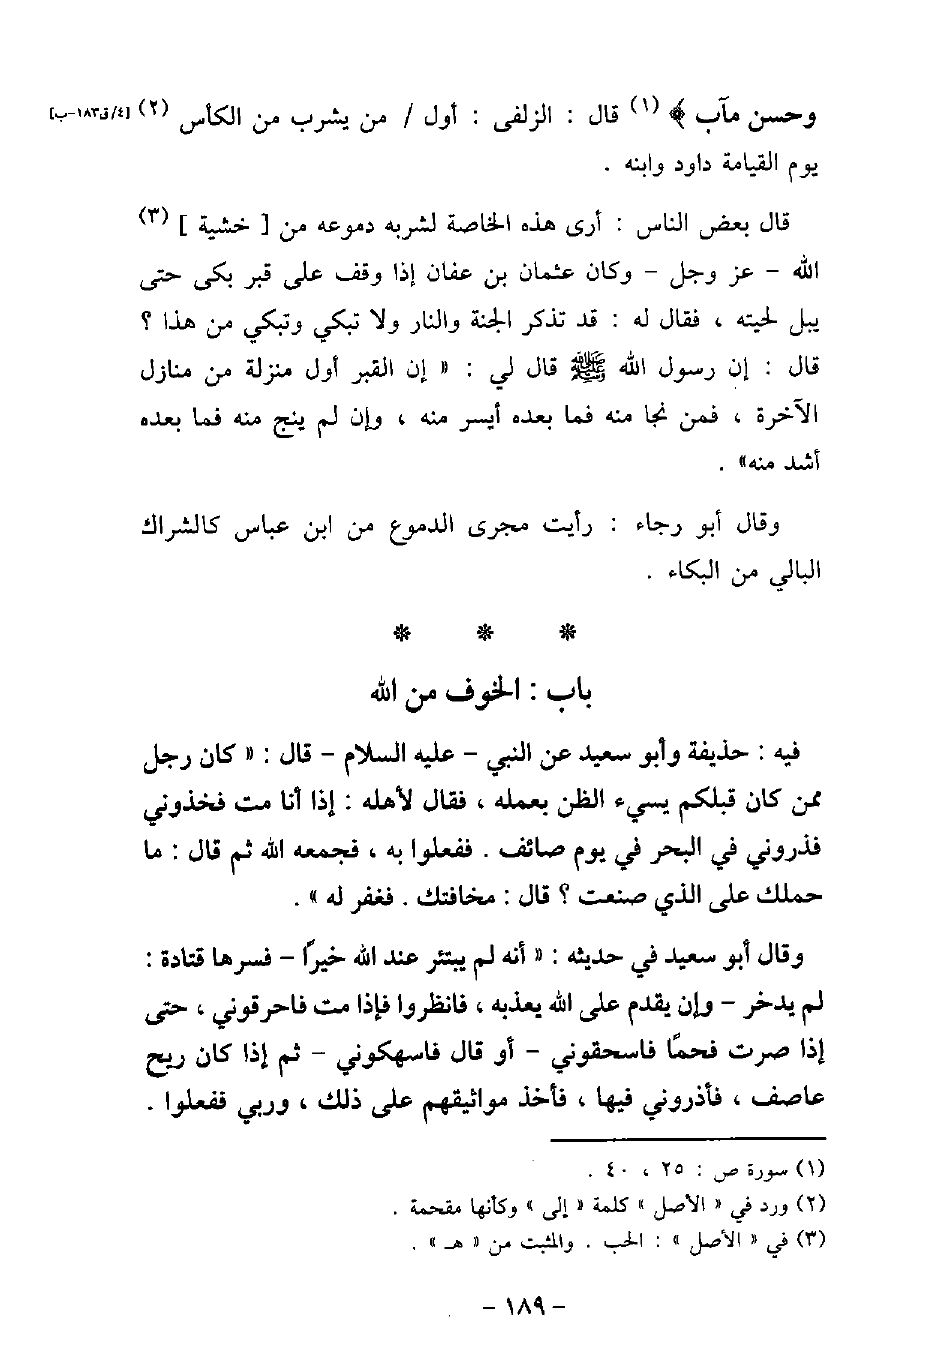 وحسن مآب ﴾ (١) قال : الزلفى : أول / من يشرب من الكأس (٢) [٤/ق١٨٣-ب]
يوم القيامة داود وابنه .
قال بعض الناس : أرى هذه الخاصة لشربه دموعه من [ خشية ] (٣)
الله – عز وجل – وكان عثمان بن عفان إذا وقف على قبر بكى حتى
يبل لحيته ، فقال له : قد تذكر الجنة والنار ولا تبكي وتبكي من هذا ؟
قال : إن رسول الله ﷺ قال لي : « إن القبر أول منزلة من منازل
الآخرة ، فمن نجا منه فما بعده أيسر منه ، وإن لم ينج منه فما بعده
أشد منه» .
وقال أبو رجاء : رأيت مجرى الدموع من ابن عباس كالشراك
البالي من البكاء .
* * *
باب : الخوف من الله
فيه : حذيفة وأبو سعيد عن النبي – عليه السلام – قال : « كان رجل
ممن كان قبلكم يسيء الظن بعمله ، فقال لأهله : إذا أنا مت فخذوني
فذروني في البحر في يوم صائف . ففعلوا به ، فجمعه الله ثم قال : ما
حملك على الذي صنعت ؟ قال : مخافتك . فغفر له » .
وقال أبو سعيد في حديثه : « أنه لم يبتئر عند الله خيرًا – فسرها قتادة :
لم يدخر – وإن يقدم على الله يعذبه ، فانظروا فإذا مت فاحرقوني ، حتى
إذا صرت فحمًا فاسحقوني – أو قال فاسهكوني – ثم إذا كان ريح
عاصف ، فأذروني فيها ، فأخذ مواثيقهم على ذلك ، وربي ففعلوا .
(١) سورة ص : ٢٥ ، ٤٠ .
(٢) ورد في « الأصل » كلمة « إلى » وكأنها مقحمة .
(٣) في « الأصل » : الحب . والمثبت من « هـ » .
– ١٨٩ –